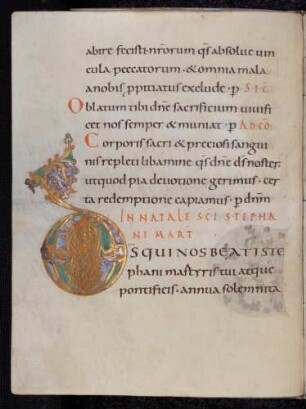 abire fecisti · nr̄orum qs̄ absolue uin
cula peccatorum · & omnia mala
a nobis ppitiatus exclude · p SIC
Oblatum tibi dn̄e sacrificium uiuifi
cet nos semper & muniat · p AD CO
Corporis sacri & preciosi sangui
nis repleti libamine qs̄ dn̄e ds̄ noster·
ut quod pia deuotione gerimus · cer
ta redemptione capiamus · p dn̄m
IN NATALE SCI STEPHA
NI MART
DS QUI NOS BEATI STE
phani martyris tui atque
pontificis · annua solemnita